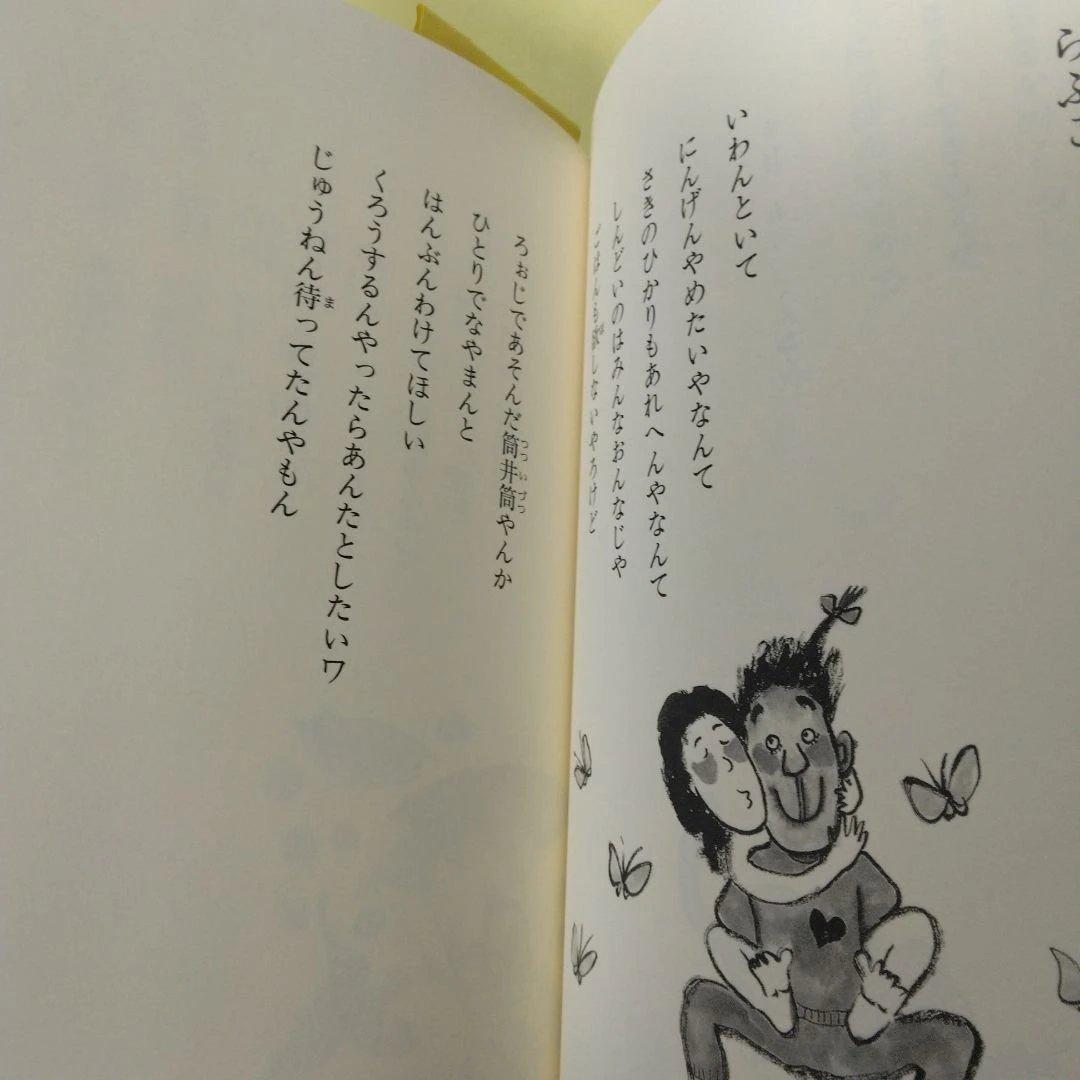 らふこ
いわんといて
にんげんやめたいやなんて
さきのひかりもあれへんやなんて
しんどいのはみんなおんなじや
ごはんも欲しないやろけど
ろぉじであそんだ筒井筒やんか
ひとりでなやまんと
はんぶんわけてほしい
くろうするんやったらあんたとしたいワ
じゅうねん待ってたんやもん